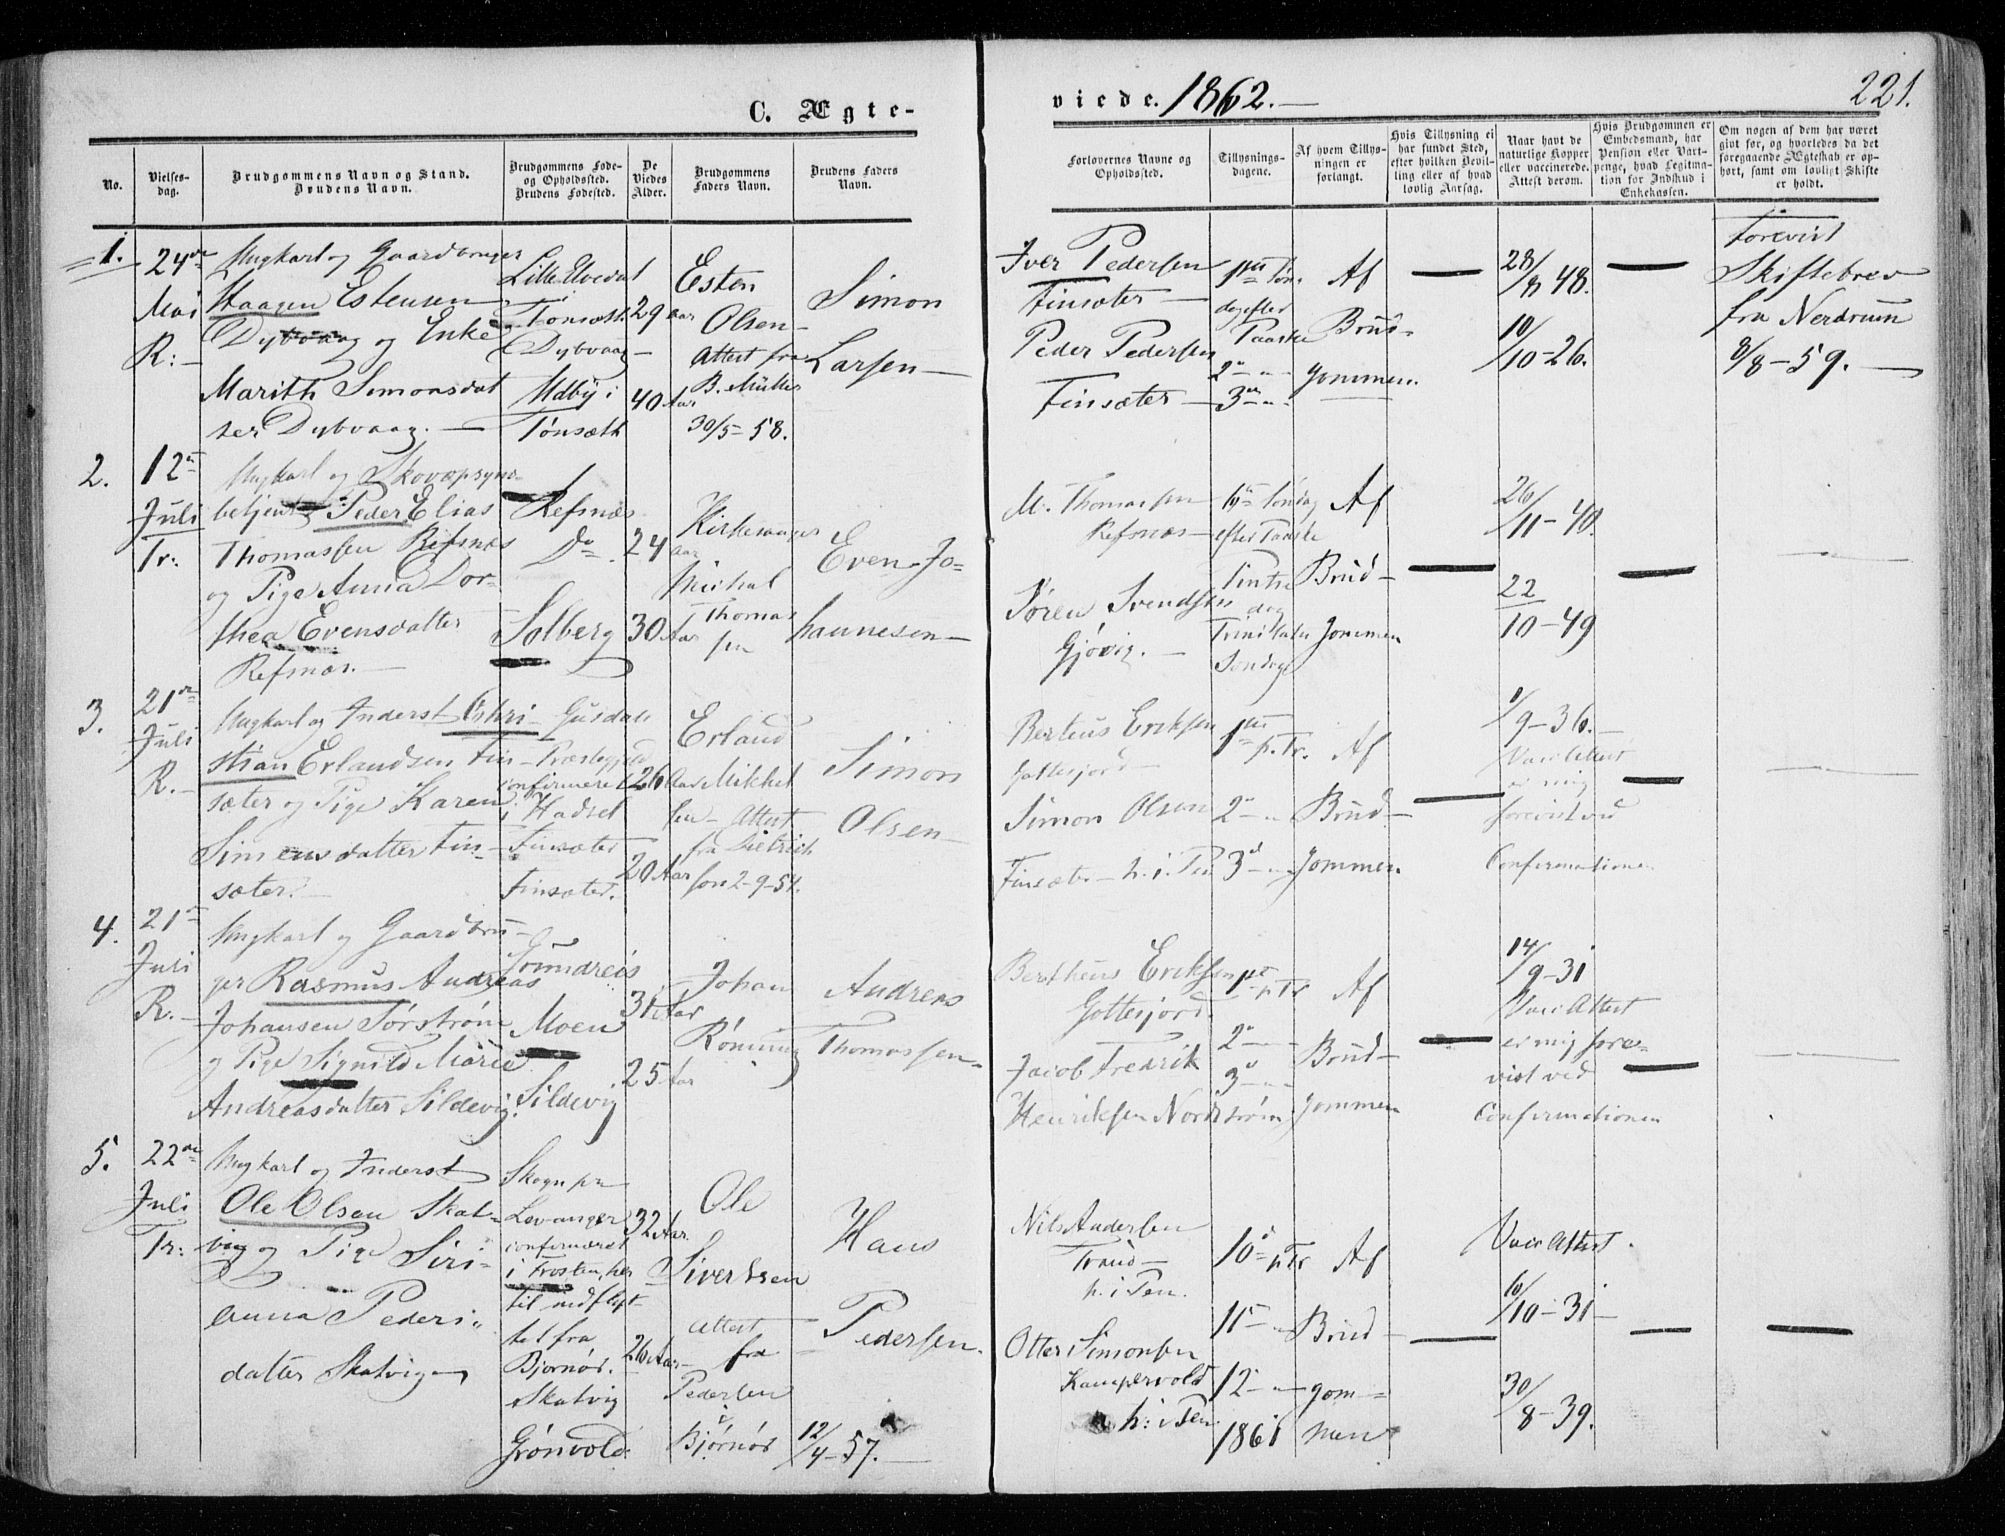 C. Ægte-
viede. 1862.
221.
No.
Vielses-
dag.
Brudgommens Navn og Stand.
Brudens Navn.
Brudgommens Føde-
og Opholdssted.
Brudens Fødested.
De
Viedes
Alder.
Brudgommens
Faders Navn.
Brudens Faders
Navn.
Forlovernes Navne og
Opholdssted.
Tillysnings-
dagene.
Af hvem Tillys-
ningen er
forlangt.
Hvis Tillysning ei
har fundet Sted,
efter hvilken Bevil-
ling eller af hvad
lovlig Aarsag.
Naar havt de
naturlige Kopper
eller vaccinerede.
Attest derom.
Hvis Brudgommen er
Embedsmand, har
Pension eller Vart-
penge, hvad Legitima-
tion for Indskud i
Enkekassen.
Om nogen af dem har været
givt før, og hvorledes da det
foregaaende Ægteskab er op-
hørt, samt om lovligt Skifte
er holdt.
1.
24de
Mai
R:
Ungkarl og Gaardbruger
Haagen Estensen
Dybvaag og Enke
Marith Simonsdat
ter Dybvaag.
Lille Elvedal
i
Tønsæth
Dybvaag
Udby i
Tønsæth
29 aar
40 Aar
Esten
Olsen
Attest fra
B. Müller
30/5 - 58.
Simon
Larsen
Iver Pedersen
Finsæter
Peder Pedersen
Finsæter
1ste Søn-
dag efter
Paaske
2
3
Af
Brud-
gommen.
28/8 48.
10/10 - 26.
Forevist
Skiftebrev
fra Nerdrum
8/8 - 59.
2.
12
Juli
Tr:
Ungkarl og Skovopsyns-
betjent Peder Elias
Thomassen Refsnæs
og Pige Anna Dor-
thea Evensdatter
Refsnæs.
Refsnæs
Do
Solberg
24 aar
30 Aar
Kirkesanger
Michal
Thomas
sen
Even Jo-
hannesen
M. Thomassen
Refsnæs
Søren Svendsen
Gjøvig.
1ste Søndag
efter Paaske
Pintse
dag
Trinitatis
Søndag
Af
Brud-
gommen
26/11 - 40.
22/10 - 49
3.
21de
Juli
R.
Ungkarl og Inderst Chri-
stian Erlandsen Fin-
sæter og Pige Karen
Simensdatter Fin-
sæter.
Gusdals
Præstegjeld
confirmeret
i Hadsel
Finsæter
Finsæter.
26 Aar
20 Aar
Erland
Mikkel
sen - Attest
fra Dietrich
son 2-9-54.
Simon
Olsen
Berteus Eriksen
Gottesjord
Simon Olsen
Finsæter - h. i. Pen
1ste p. Tr.
2
3
Af
Brud-
gommen.
1/9 - 36.
Vacc. Attest
er mig
forevist ved
Confirmationen
4.
21
Juli
R.
Ungkarl og Gaardbru-
ger Rasmus Andreas
Johansen Sørstrøm
og Pige Signild Marie
Andreasdatter Sildevig.
Moen
Sildevig
31 Aar
25 Aar
Johan
Rønning
Andreas
Thomassen
Bertheus Eriksen
Gottesjord
Jacob Fredrik
Henriksen Nordstrøm
1ste p Tr
2
3
Af
Brud-
gommen
14/9 - 31
Vacc. Attest
er mig fore-
vist ved
Confirmationen
5.
22de
Juli
Tr:
Ungkarl og Inderst
Ole Olsen Skat-
vig og Pige Siri-
anna Peders-
datter Skatvig
Skogn pr
Levanger
confirmeret
i Frosten, her
til indflyt-
tet fra
Bjørnør.
Skatvig
Grønvold.
32 Aar
26 Aar
Ole
Sivertsen
Attest
fra
Pedersen
i
Bjørnør 12/4 - 57.
Hans
Pedersen.
Nils Andersen
Trand
h. i Pen.
Otter Simonsen
Kampevold
h: i Pen.
10 p Tr
11
12
1861
Af
Brud-
gom-
men
Vacc Attest.
10/10 - 31
30/8 - 39.